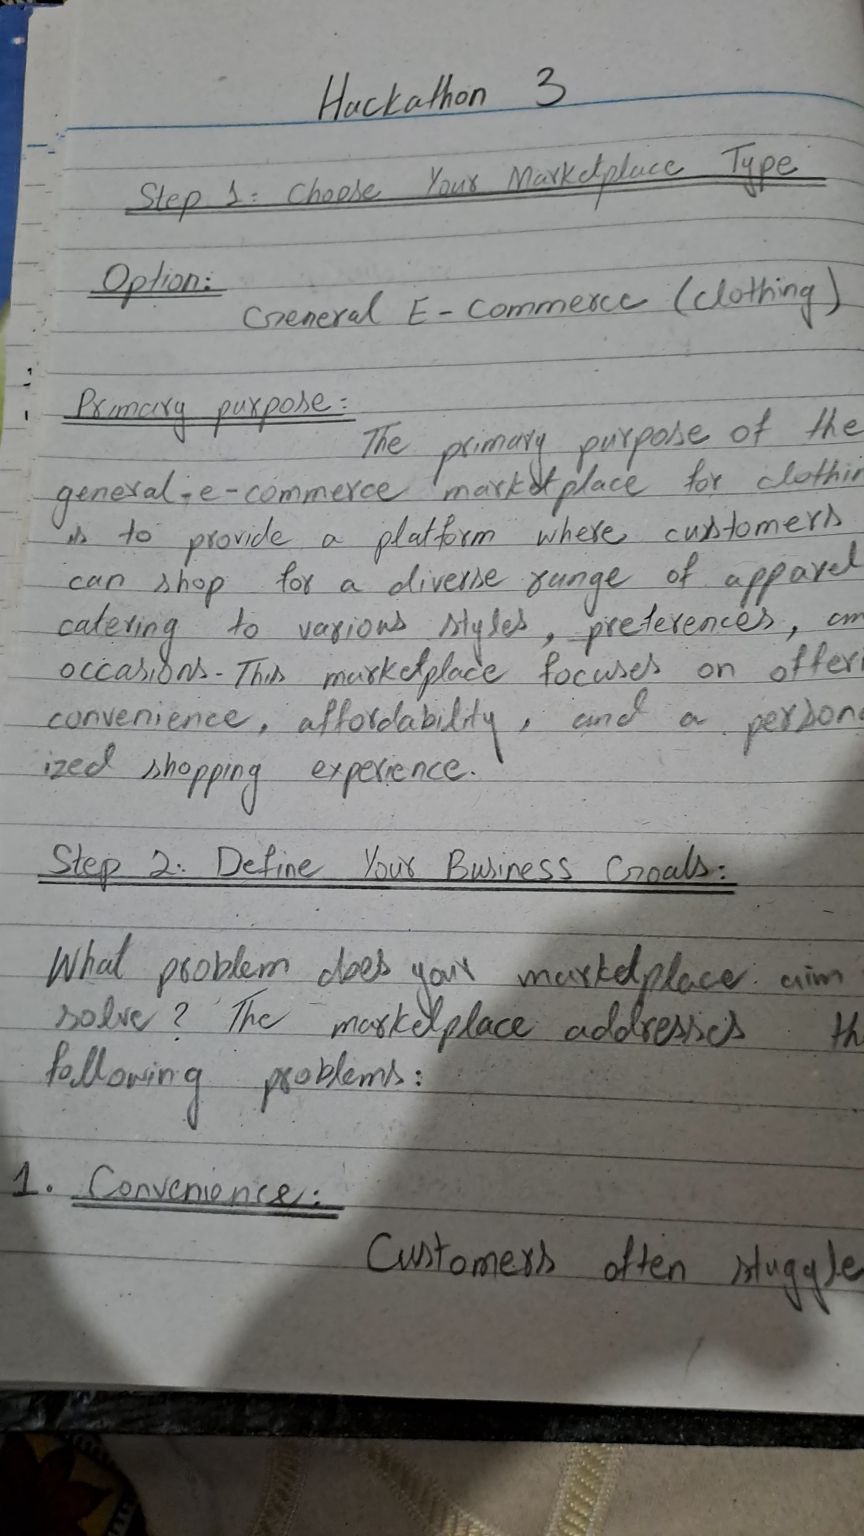 Hackathon 3
Step 1: Choose Your Marketplace Type
Option:
General E-Commerce (clothing)
Primary purpose:
The primary purpose of the
general-e-commerce marketplace for clothin
is to provide a platform where customers
can shop for a diverse range of apparel
catering to various styles, preferences, an
occasions. This marketplace focuses on offeri
convenience, affordability, and a person
ized shopping experience.
Step 2: Define Your Business Goals:
What problem does your marketplace aim
solve? The marketplace addresses th
following problems:
1. Convenience:
Customers often stuggle